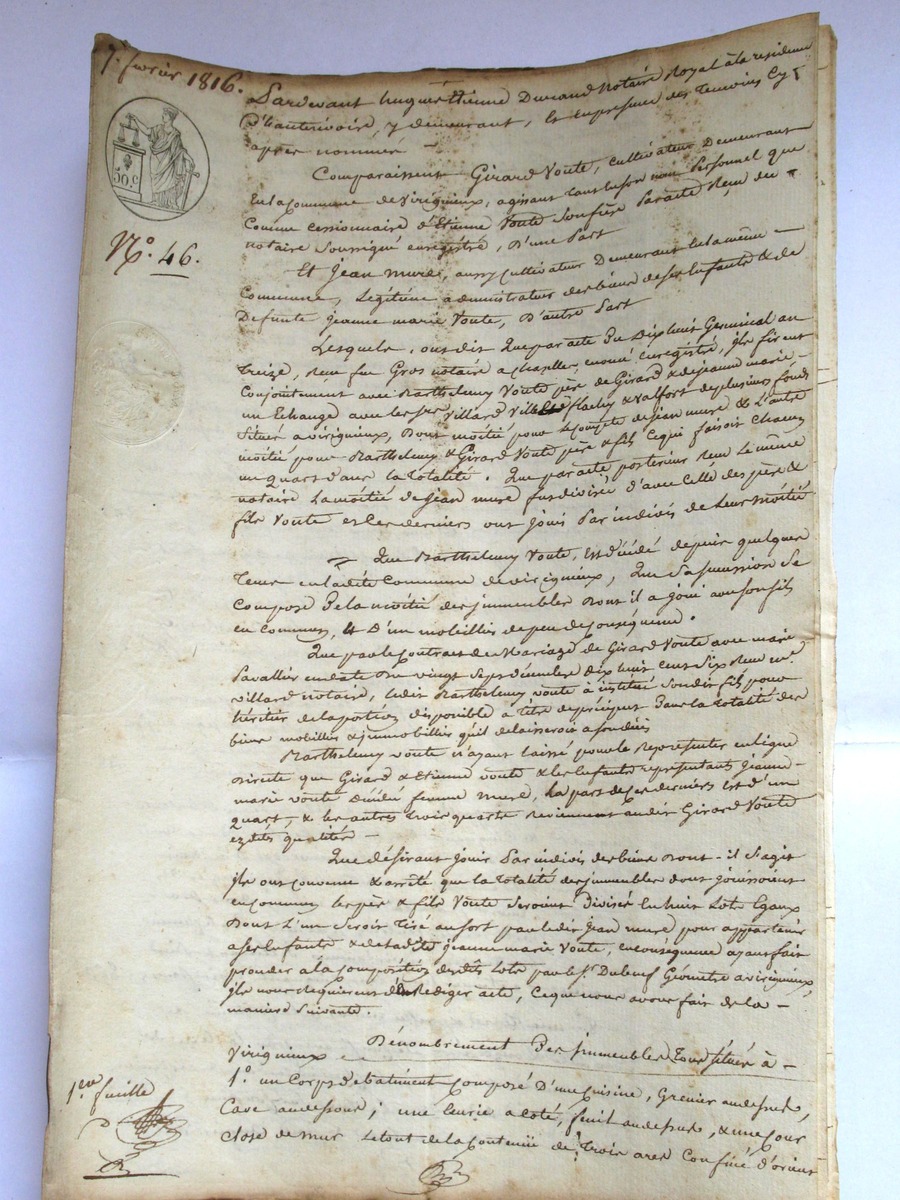 7. fevrier 1816.
50. c
N°. 46.
Pardevant hugues Etienne Durand Notaire Royal à la residence
d'hauterivoire, y demeurant, et en presence des Temoins Cy
après nommés
Comparaissent Girard Voute, cultivateur Demeurant
En la Commune de Viriginieux, agissant tant en son nom Personnel que
Comme cessionnaire d'Etienne Voute Son frère Par acte Reçu du
notaire Soussigné enregistré, D'une Part
Et Jean Mure, aussy cultivateur Demeurant en la même
Commune, Légitime administrateur des biens de ses Enfants & de
Defunte Jeanne marie Voute, D'autre Part
Lesquels ont dit Que par acte Du Dix huit Germinal an
Treize, Reçu feu Gros notaire a Chazelles, enregistré, ils firent
Conjointement avec Barthelemy Voute père de Girard & de jeanne marie
un Echange avec les Srs Villard & Valfort de plusieurs fonds
Situés a viriginieux, Dont moitié pour le Compte de jean mure & L'autre
moitié pour Barthelemy & Girard Voute père & fils Ce qui faisoit Chacun
un quart dans la Totalité. Que par acte posterieur Reçu le même
notaire La moitié de Jean mure fut divisée d'avec Celle des père &
fils Voute et les derniers ont joui Par indivis de Leur Moitié
Que Barthelemy Voute, Est Décédé depuis quelque
Tems en ladite Commune de viriginieux, Que Sa succession Se
Compose De la moitié des immeubles Dont il a joui avec son fils
en Commun, & D'un mobillier de peu de Conséquence.
Que par le Contrat de Mariage de Girard Voute avec marie
en date Du vingt Sept décembre dix huit Cent Six Reçu me
villard notaire, ledit Barthelemy voute a institué Son dit fils pour
héritier de la portion disponible a Titre de préciput Dans la Totalité des
biens mobilliers & immobilliers qu'il delaisseroit a son décès
Barthelemy voute n'ayant laissé pour le Representer en ligne
Directe que Girard & Etienne voute & les Enfants représentants Jeanne
marie voute Décédée femme mure, la part de ces derniers est d'un
quart, & les autres Trois quarts Reviennent audit Girard Voute
ez dites qualités
Que désirant jouir Par indivis des biens Dont il S'agit
ils ont convenu & arrêté que la Totalité des immeubles dont jouissoient
en Commun les père & fils Voute Seroient Divisés En huit Lots Egaux
Dont L'un Seroit Tiré au Sort par ledit Jean mure pour appartenir
a ses Enfants & de ladite jeanne marie Voute, en conséquence ayant fait
proceder a la Composition desdits Lots par le Sr. Géometre a viriginieux,
ils nous Requierent d'en Rediger acte, Ce que nous avons fait de la
maniere Suivante.
Dénombrement Des immeubles Tous Situés à
Viriginieux
1°. un Corps de batiment Composé D'une Cuisine, Grenier au dessus,
Cave au dessous; une Ecurie a Coté, fenil au dessus, & une Cour
Close de Mur Le tout de la Contenue de Trois ares Confiné d'orient
1ere feuille